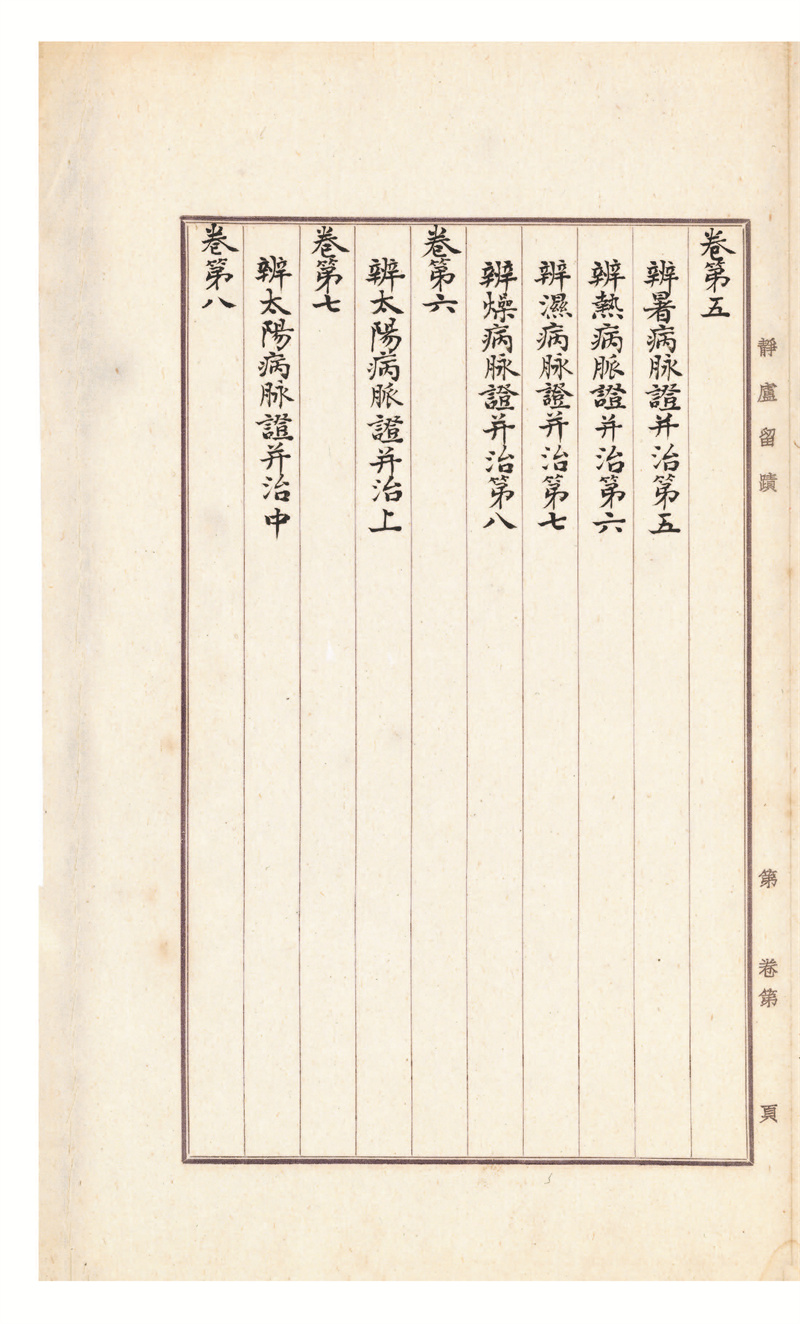 卷第五
辨暑病脉證并治第五
辨熱病脈證并治第六
辨濕病脉證并治第七
辨燥病脉證并治第八
卷第六
辨太陽病脈證并治上
卷第七
辨太陽病脉證并治中
卷第八
靜廬留蹟
第 卷第 頁